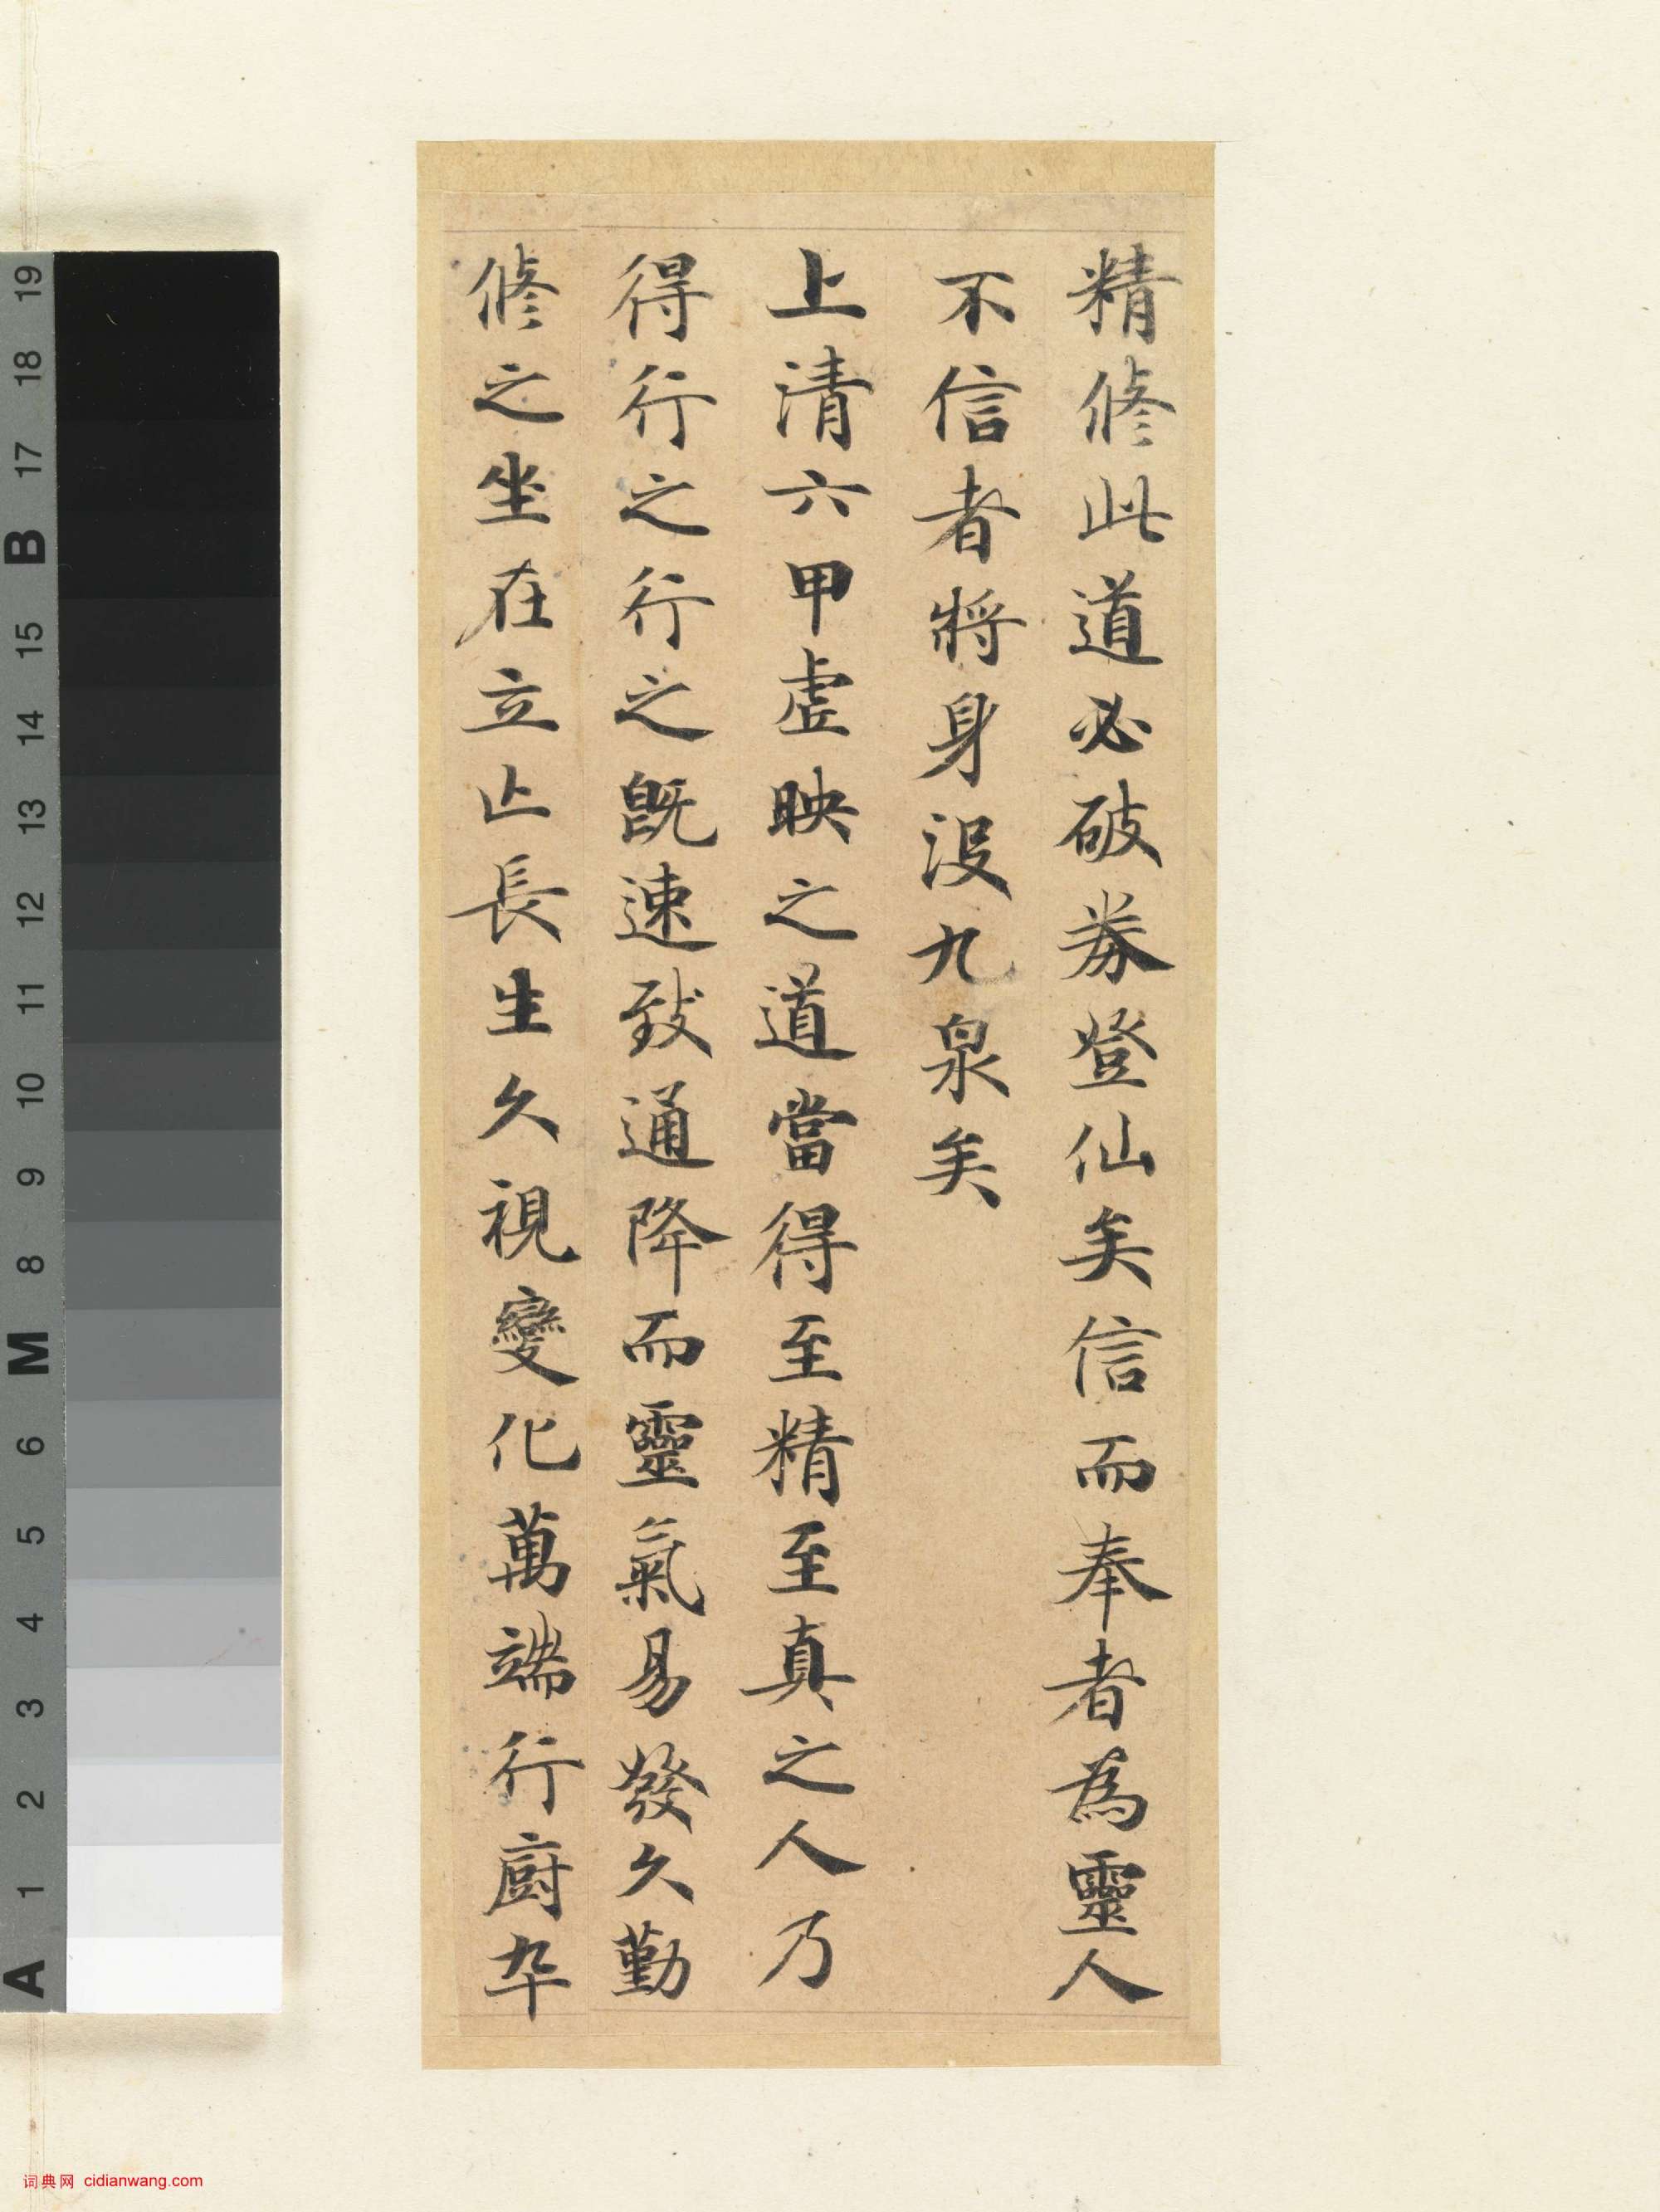 精脩此道必破券登仙矣信而奉者為靈人
不信者將身没九泉矣
上清六甲虛映之道當得至精至真之人乃
得行之行之旣速致通降而靈氣易發久勤
脩之坐在立亡長生久視變化萬端行廚卒
19
18
17
B
15
14
13
12
11
10
9
8
M
6
5
4
3
2
1
A
词典网 cidianwang.com